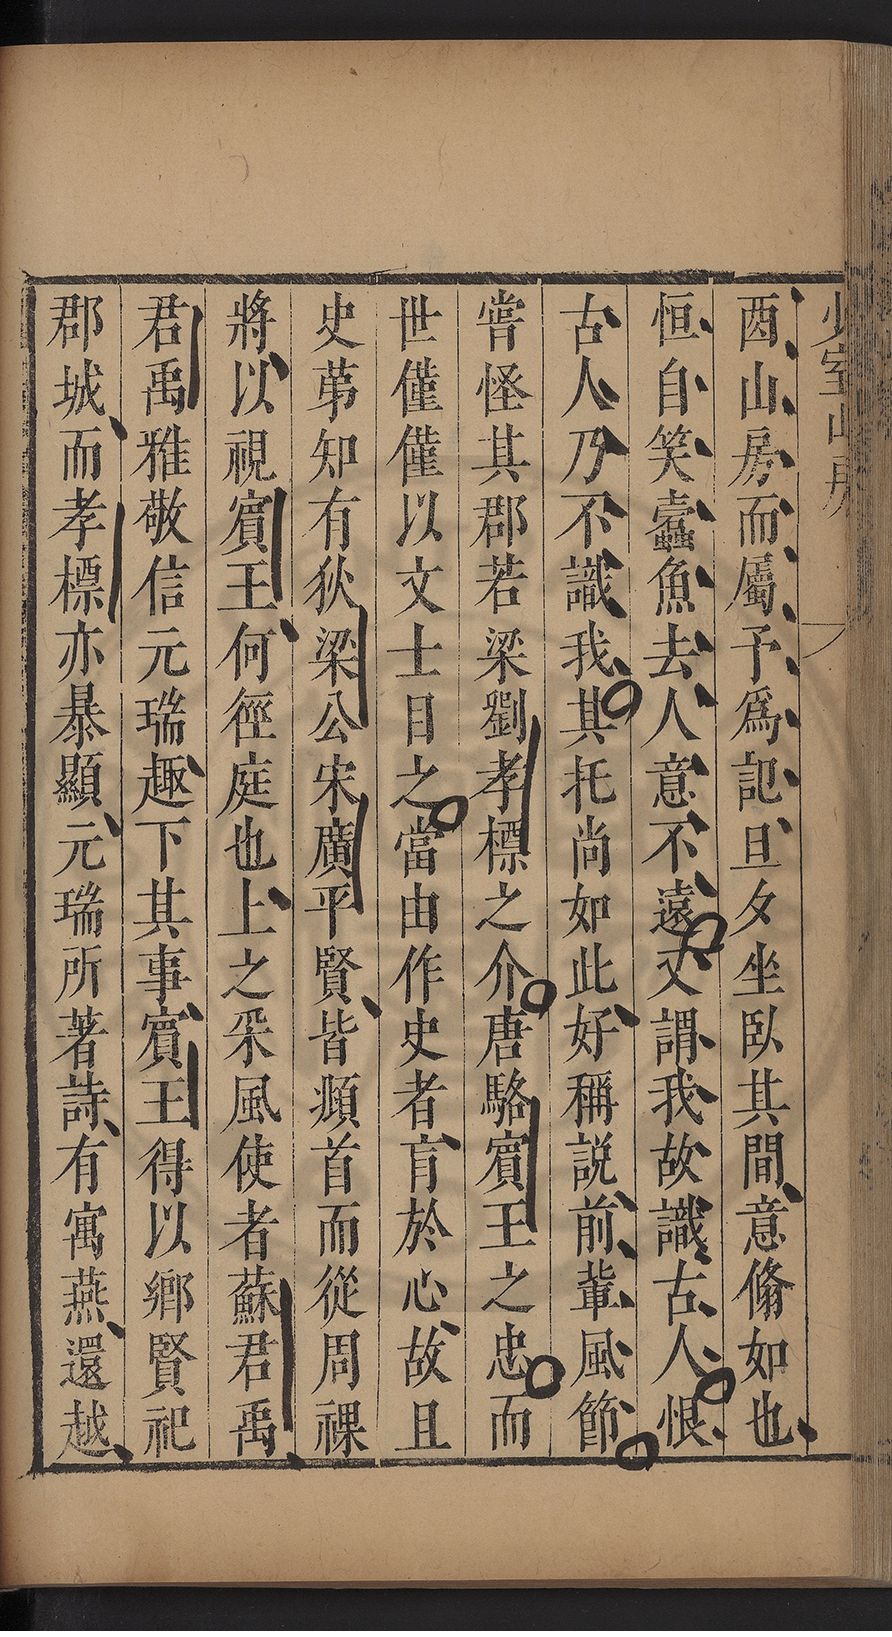 少室山房
酉山房而屬予爲記旦夕坐臥其間意翛如也
恒自笑蠹魚去人意不遠又謂我故識古人恨
古人乃不識我其托尚如此好稱説前輩風節
嘗怪其郡若梁劉孝標之介唐駱賓王之忠而
世僅僅以文士目之當由作史者肓於心故且
史苐知有狄梁公宋廣平賢皆頫首而從周祼
將以視賓王何徑庭也上之采風使者蘇君禹
君禹雅敬信元瑞趣下其事賓王得以鄉賢祀
郡城而孝標亦暴顯元瑞所著詩有寓燕還越